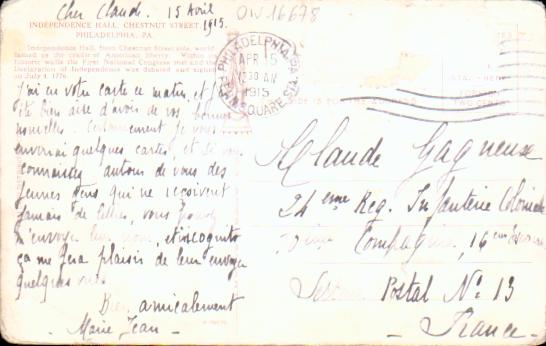 Cher Claude. 15 Avril 1915.
OW 16678
INDEPENDENCE HALL, CHESTNUT STREET
PHILADELPHIA, PA.
Independence Hall, from Chestnut Street side, world-
famed as the cradle of American liberty. Within its
historic walls the First National Congress met and the
Declaration of Independence was debated and signed
on July 4, 1776.
PHILADELPHIA, PA.
APR 15
1915
J'ai eu votre carte ce matin, et j'ai
été bien aise d'avoir de vos bonnes
nouvelles. Certainement je vous
enverrai quelques cartes, et si vous
connaissez autour de vous des
jeunes gens qui ne reçoivent
jamais de lettres, vous pouvez
m'envoyer leur nom, et incognito
ça me fera plaisir de leur envoyer
quelques vues
Bien amicalement
- Marie Jean -
Claude Gagneux
24 eme Reg. Infanterie Coloniale
Compagnie, 16 em
Postal No 13
- France -